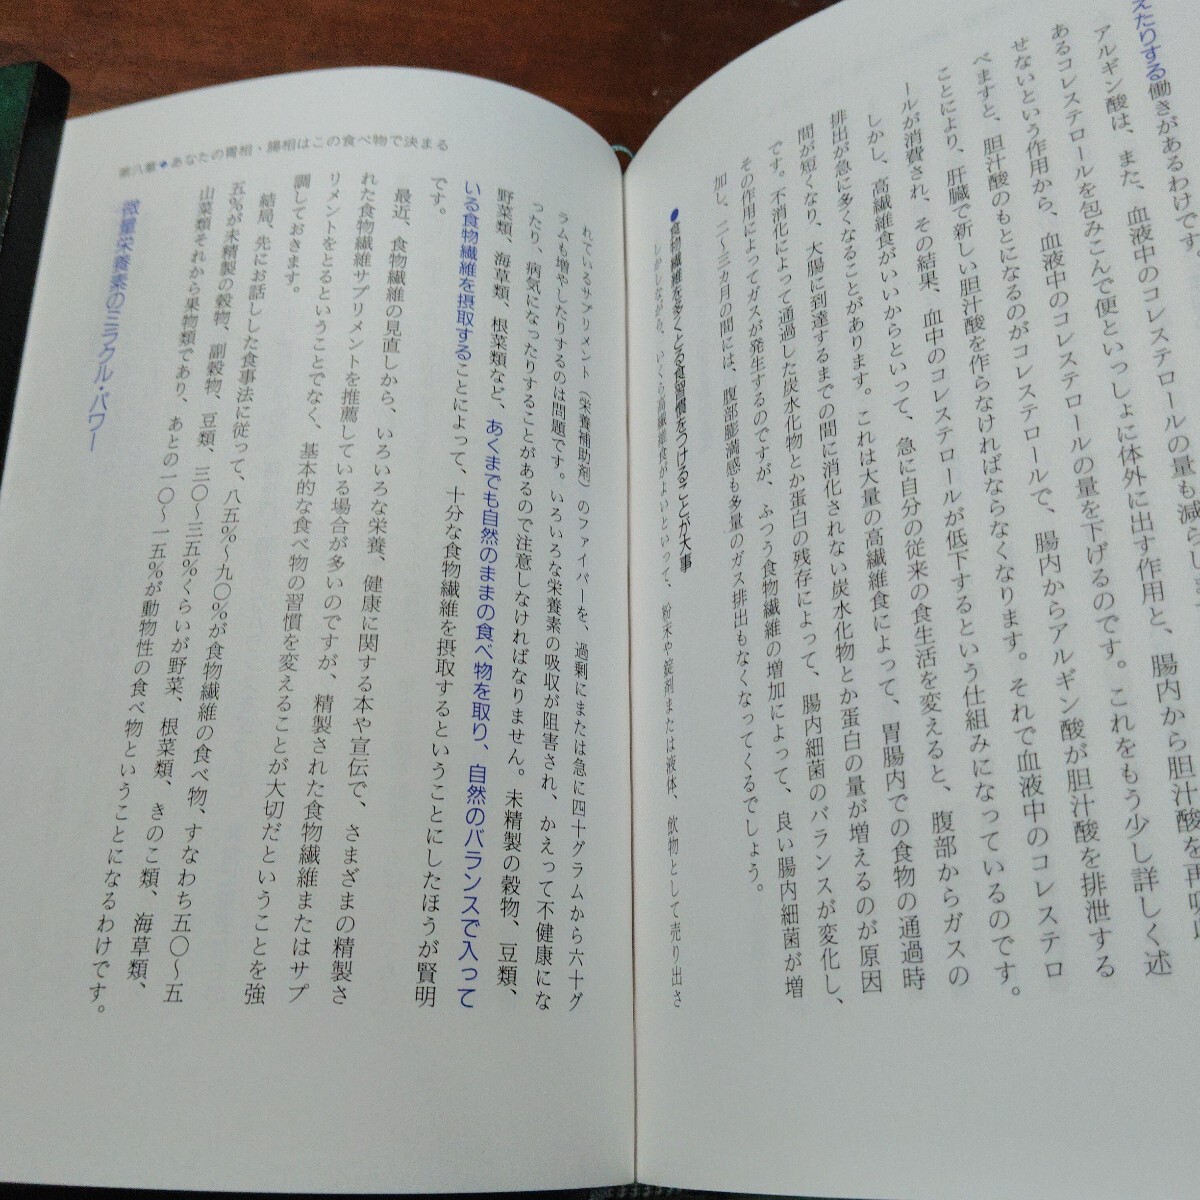 えたりする働きがあるわけです。
アルギン酸は、また、血液中のコレステロールの量も減らし、
あるコレステロールを包みこんで便といっしょに体外に出す作用と、腸内から胆汁酸を再吸収
せないという作用から、血液中のコレステロールの量を下げるのです。これをもう少し詳しく述
べますと、胆汁酸のもとになるのがコレステロールで、腸内からアルギン酸が胆汁酸を排泄する
ことにより、肝臓で新しい胆汁酸を作らなければならなくなります。それで血液中のコレステロ
ールが消費され、その結果、血中のコレステロールが低下するという仕組みになっているのです。
しかし、高繊維食がいいからといって、急に自分の従来の食生活を変えると、腹部からガスの
排出が急に多くなることがあります。これは大量の高繊維食によって、胃腸内での食物の通過時
間が短くなり、大腸に到達するまでの間に消化されない炭水化物とか蛋白の量が増えるのが原因
です。不消化によって通過した炭水化物とか蛋白の残存によって、腸内細菌のバランスが変化し、
その作用によってガスが発生するのですが、ふつう食物繊維の増加によって、良い腸内細菌が増
加し、二〜三カ月の間には、腹部膨満感も多量のガス排出もなくなってくるでしょう。
●食物繊維を多くとる食習慣をつけることが大事
しかしながら、いくら高繊維食がよいといって、粉末や錠剤または液体、飲物として売り出さ
第八章◆あなたの胃相・腸相はこの食べ物で決まる
れているサプリメント（栄養補助剤）のファイバーを、過剰にまたは急に四十グラムから六十グ
ラムも増やしたりするのは問題です。いろいろな栄養素の吸収が阻害され、かえって不健康にな
ったり、病気になったりすることがあるので注意しなければなりません。未精製の穀物、豆類、
野菜類、海草類、根菜類など、あくまでも自然のままの食べ物を取り、自然のバランスで入って
いる食物繊維を摂取することによって、十分な食物繊維を摂取するということにしたほうが賢明
です。
最近、食物繊維の見直しから、いろいろな栄養、健康に関する本や宣伝で、さまざまの精製さ
れた食物繊維サプリメントを推薦している場合が多いのですが、精製された食物繊維またはサプ
リメントをとるということでなく、基本的な食べ物の習慣を変えることが大切だということを強
調しておきます。
結局、先にお話しした食事法に従って、八五％〜九〇％が食物繊維の食べ物、すなわち五〇〜五
五％が未精製の穀物、副穀物、豆類、三〇〜三五％くらいが野菜、根菜類、きのこ類、海草類、
山菜類それから果物類であり、あとの一〇〜一五％が動物性の食べ物ということになるわけです。
微量栄養素のミラクル・パワー